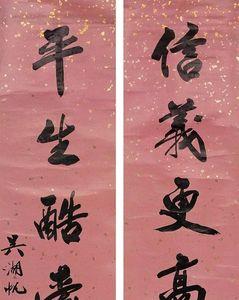 信義更高
平生酷
吳湖帆